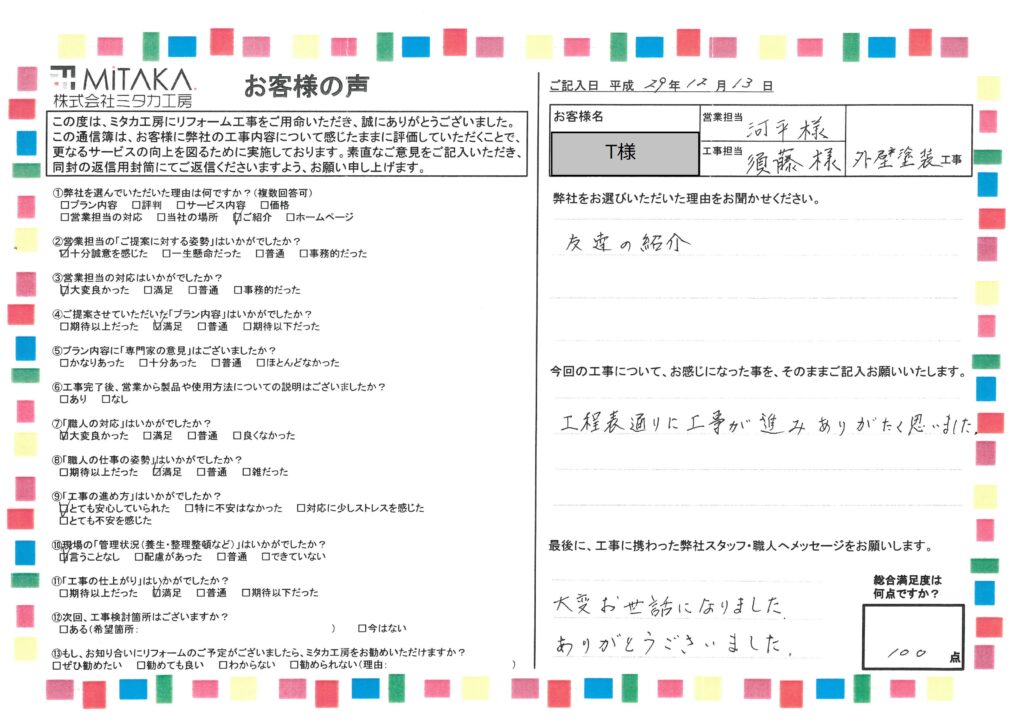 MiTAKA
株式会社ミタカ工房
お客様の声
この度は、ミタカ工房にリフォーム工事をご用命いただき、誠にありがとうございました。
この通信簿は、お客様に弊社の工事内容について感じたままに評価していただくことで、
更なるサービスの向上を図るために実施しております。素直なご意見をご記入いただき、
同封の返信用封筒にてご返信くださいますよう、お願い申し上げます。
①弊社を選んでいただいた理由は何ですか？(複数回答可)
□プラン内容 □評判 □サービス内容 □価格
□営業担当の対応 □当社の場所 ☑ご紹介 □ホームページ
②営業担当の「ご提案に対する姿勢」はいかがでしたか？
☑十分誠意を感じた □一生懸命だった □普通 □事務的だった
③営業担当の対応はいかがでしたか？
☑大変良かった □満足 □普通 □事務的だった
④ご提案させていただいた「プラン内容」はいかがでしたか？
□期待以上だった ☑満足 □普通 □期待以下だった
⑤プラン内容に「専門家の意見」はございましたか？
□かなりあった □十分あった □普通 □ほとんどなかった
⑥工事完了後、営業から製品や使用方法についての説明はございましたか？
□あり □なし
⑦「職人の対応」はいかがでしたか？
☑大変良かった □満足 □普通 □良くなかった
⑧「職人の仕事の姿勢」はいかがでしたか？
□期待以上だった ☑満足 □普通 □雑だった
⑨「工事の進め方」はいかがでしたか？
☑とても安心していられた □特に不安はなかった □対応に少しストレスを感じた
□とても不安を感じた
⑩現場の「管理状況(養生・整理整頓など)」はいかがでしたか？
☑言うことなし □配慮があった □普通 □できていない
⑪「工事の仕上がり」はいかがでしたか？
□期待以上だった ☑満足 □普通 □期待以下だった
⑫次回、工事検討箇所はございますか？
□ある(希望箇所: ) □今はない
⑬もし、お知り合いにリフォームのご予定がございましたら、ミタカ工房をお勧めいただけますか？
□ぜひ勧めたい □勧めても良い □わからない □勧められない(理由: )
ご記入日 平成 29年 12月 13日
お客様名
T様
営業担当 河平様
工事担当 須藤様
外壁塗装工事
弊社をお選びいただいた理由をお聞かせください。
友達の紹介
今回の工事について、お感じになった事を、そのままご記入お願いいたします。
工程表通りに工事が進みありがたく思いました.
最後に、工事に携わった弊社スタッフ・職人へメッセージをお願いします。
大変お世話になりました.
ありがとうございました.
総合満足度は
何点ですか？
100 点